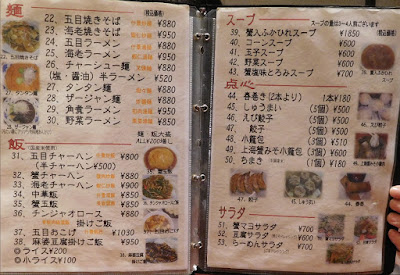 麺
(税込価格)
22. 五目焼きそば ¥880
23. 海老焼きそば ¥950
24. 五目ラーメン ¥880
25. 海老ラーメン ¥950
26. チャーシュー麺 ¥880
(塩・醤油) 半ラーメン ¥520
27. タンタン麺 ¥880
28. ザージャン麺 ¥880
29. 角煮ラーメン ¥950
30. 野菜ラーメン ¥850
27. タンタン麺
麺 飯大盛
飯
31. 五目チャーハン ¥800
(半チャーハン ¥500)
32. 蟹チャーハン ¥900
33. 海老チャーハン ¥900
34. 中華飯 ¥850
35. 蟹玉飯 ¥850
36. チンジャオロース ¥880
掛けご飯
37. 五目おこげ ¥1030
38. 麻婆豆腐掛けご飯 ¥950
大ライス ¥200
小ライス ¥100
スープ
スープの量は3~4人前ございます
39. 蟹入ふかひれスープ ¥1650
(税込価格)
40. コーンスープ ¥600
41. 玉子スープ ¥600
42. 野菜スープ ¥600
43. 蟹塩味とろみスープ ¥700
点心
44. 春巻き(2本より) 1本¥180
45. しゅうまい (5個) ¥500
46. えび餃子 (5個) ¥500
47. 餃子 (5個) ¥450
48. 小籠包 (5個) ¥510
49. 上海蟹みそ小籠包 (5個) ¥600
50. ちまき (1個) ¥180
47. 餃子
45. しゅうまい
44. 春巻
サラダ
51. 蟹マヨサラダ ¥700
52. 豆腐サラダ ¥700
53. らーめんサラダ ¥700